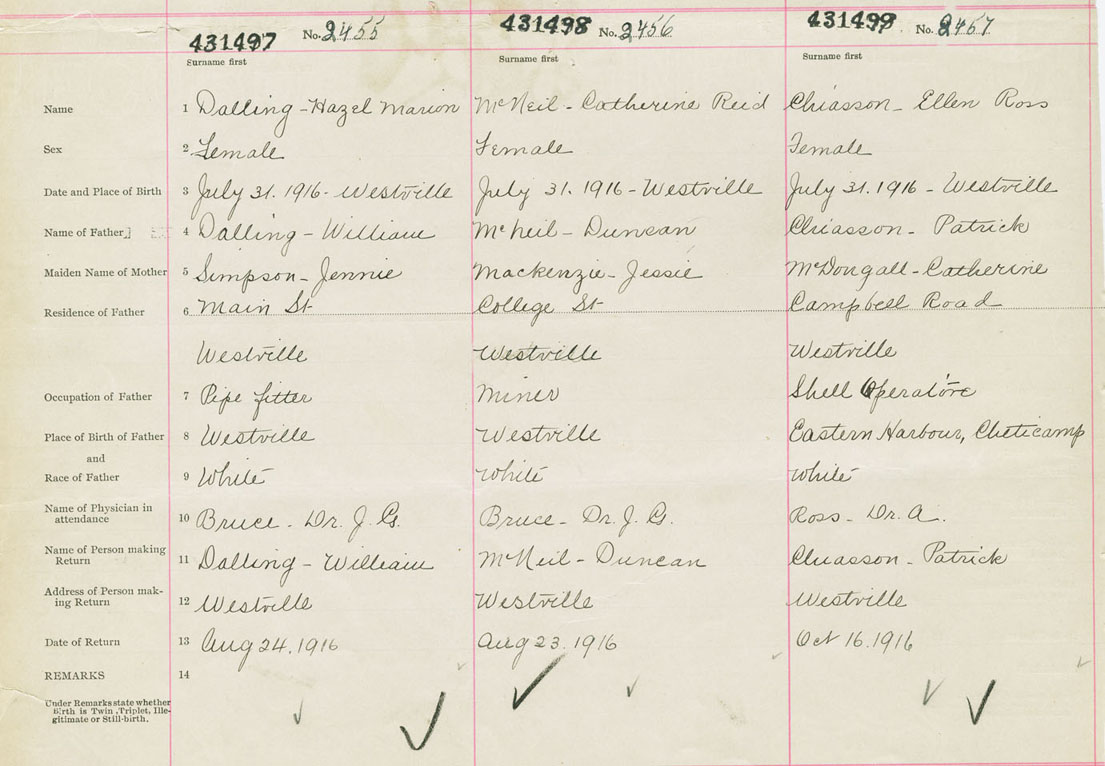 431497 No. 2455 431498 No. 2456 431499 No. 2457
Surname first Surname first Surname first
Name 1 Dalling - Hazel Marion McNeil - Catherine Reid Chiasson - Ellen Ross
Sex 2 Female Female Female
Date and Place of Birth 3 July 31. 1916 - Westville July 31. 1916 - Westville July 31. 1916 - Westville
Name of Father 4 Dalling - William McNeil - Duncan Chiasson - Patrick
Maiden Name of Mother 5 Simpson - Jennie Mackenzie - Jessie McDongall - Catherine
Residence of Father 6 Main St College St Campbell Road
Westville Westville Westville
Occupation of Father 7 Pipe fitter Miner Shell Operator
Place of Birth of Father 8 Westville Westville Eastern Harbour, Cheticamp
and
Race of Father 9 White White White
Name of Physician in
attendance 10 Bruce - Dr. J. G. Bruce - Dr. J. G. Ross - Dr. A.
Name of Person making
Return 11 Dalling - William McNeil - Duncan Chiasson - Patrick
Address of Person mak-
ing Return 12 Westville Westville Westville
Date of Return 13 Aug 24. 1916 Aug 23. 1916 Oct 16. 1916
REMARKS 14
Under Remarks state whether
Birth is Twin, Triplet, Ille-
gitimate or Still-birth.